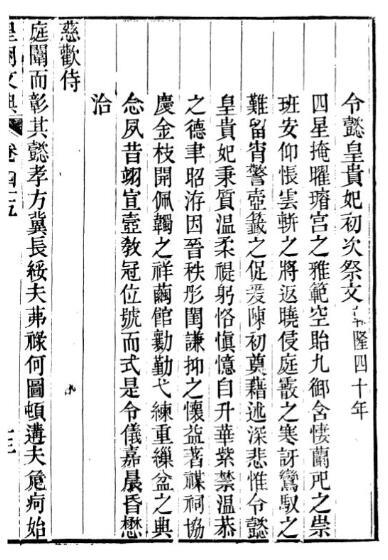 令懿皇貴妃初次祭文 隆四十年
四星掩曜璿宮之雅範空貽九御含悽蘭戺之崇
班安仰悵雲軿之將返曉侵庭霰之寒訝鸞馭之
難留宵警壺籤之促爰陳初奠藉述深悲惟令懿
皇貴妃秉質温柔禔躬恪慎憶自升華紫禁温恭
之德聿昭洊因晉秩彤闈謙抑之懷益著禖祠協
慶金枝開佩韣之祥繭館勸勤弋練重繅盆之典
念夙昔翊宣壼敎冠位號而式是令儀嘉晨昏懋
治
慈歡侍
庭闈而彰其懿孝方冀長綏夫茀祿何圖頓遘夫危疴始
皇朝文典 卷四十五